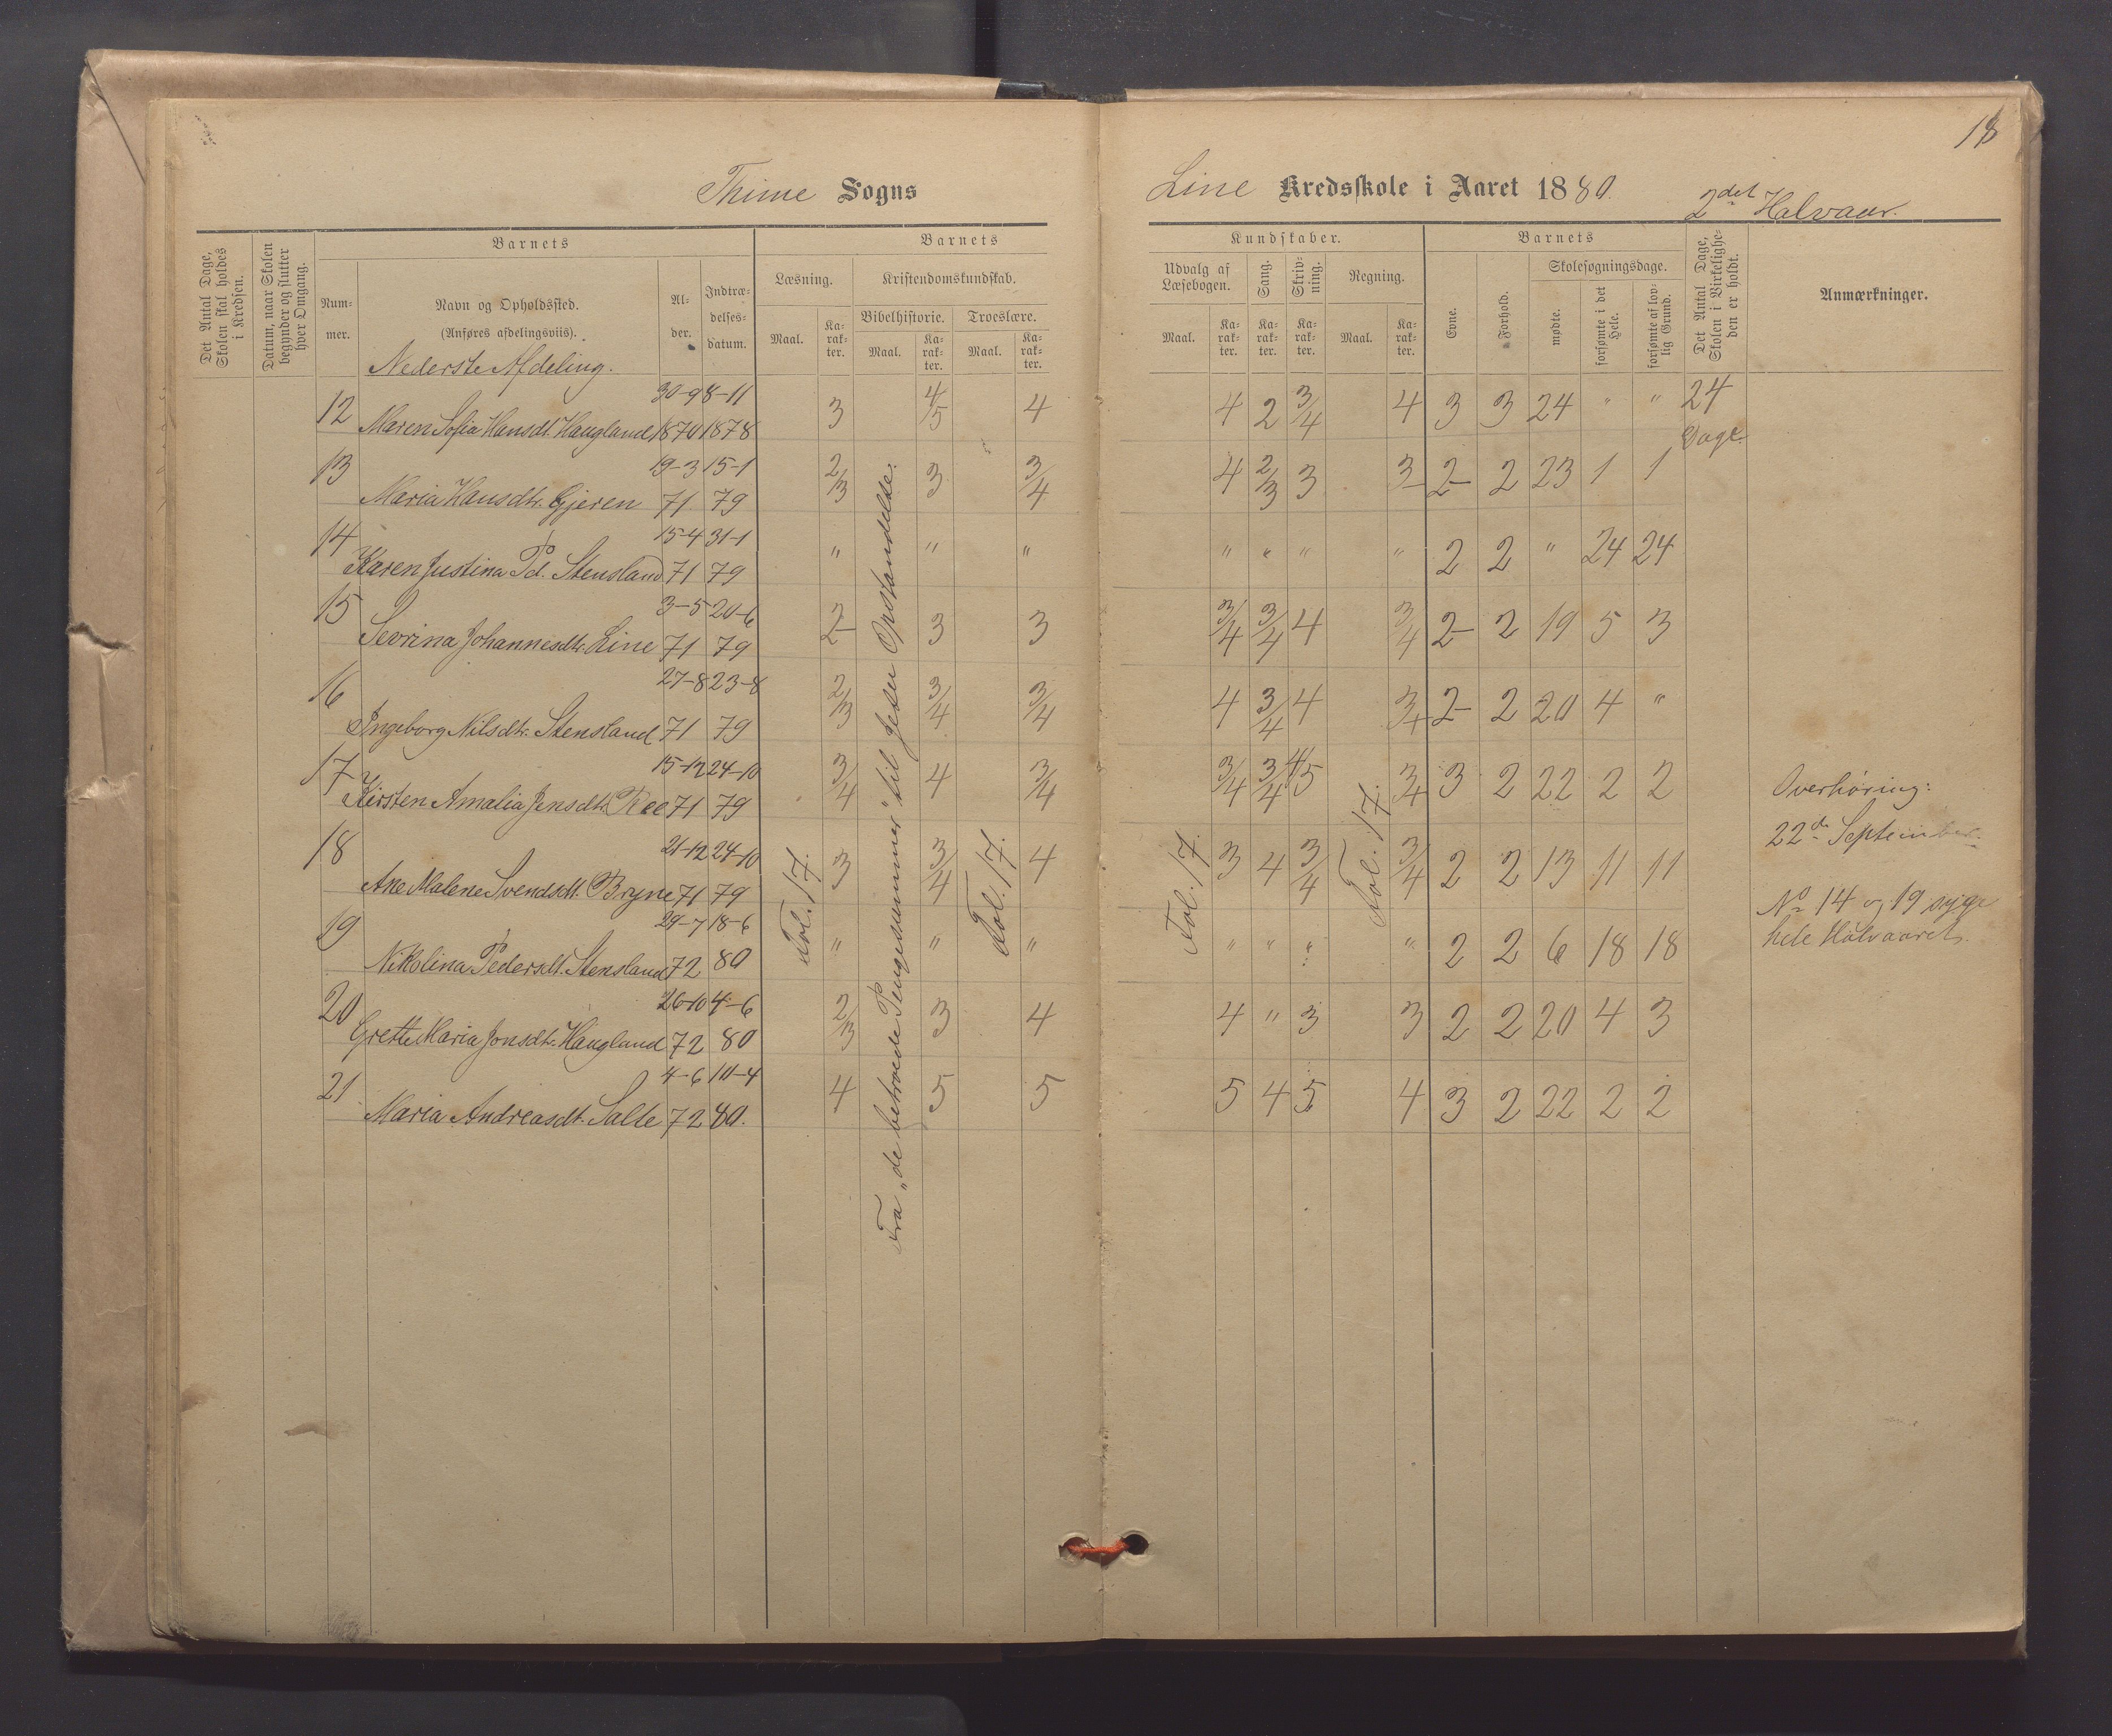 18
Thime Sogns
Line Kredsskole i Aaret 1880.
2det Halvaar.
Det Antal Dage, Skolen skal holdes i Kredsen.
Datum, naar Skolen begynder og slutter hver Omgang.
Barnets
Num-mer.
Navn og Opholdssted.
(Anføres afdelingsviis).
Al-der.
Indtræ-delses-datum.
Barnets
Læsning.
Kristendomskundskab.
Bibelhistorie.
Troeslære.
Maal.
Ka-rak-ter.
Maal.
Ka-rak-ter.
Maal.
Ka-rak-ter.
Kundskaber.
Udvalg af Læsebogen.
Sang.
Skriv-ning.
Regning.
Maal.
Ka-rak-ter.
Ka-rak-ter.
Ka-rak-ter.
Maal.
Ka-rak-ter.
Barnets
Evne.
Forhold.
Skolesøgningsdage.
mødte.
forsømte i det Hele.
forsømte af lov-lig Grund.
Det Antal Dage, Skolen i Virkelighe-den er holdt.
Anmærkninger.
Nederste Afdeling.
30-9 8-11
12 Maren Sofia Hansdt. Haugland 1870 1878 3 4/5 4 4 2 3/4 4 3 3 24 " " 24 Dage.
19-3 15-1
13 Maria Hansdtr. Gjeren 71 79 2/3 3 3/4 4 2/3 3 3- 2- 2 23 1 1
15-4 31-1
14 Karen Justina Pd. Stensland 71 79 " " " " " " " 2 2 " 24 24
3-5 20-6
15 Sevrina Johannesdtr. Line 71 79 2- 3 3 3/4 3/4 4 3/4 2- 2 19 5 3
27-8 23-8
16 Ingeborg Nilsdtr. Stensland 71 79 2/3 3/4 3/4 4 3/4 4 3/4 2- 2 20 4 "
15-12 24-10
17 Kirsten Amalia Jensdtr. Ree 71 79 3/4 4 3/4 3/4 3/4 4/5 3/4 3 2 22 2 2
21-12 24-10
18 Ane Malene Svendsdt. Bryne 71 79 3 3/4 4 3 4 3/4 3/4 2 2 13 11 11
29-7 18-6
19 Nikolina Pedersdt. Stensland 72 80 " " " " " " " 2 2 6 18 18
26-10 4-6
20 Grette Maria Jonsdtr. Haugland 72 80 2/3 3 4 4 " 3 3 2 2 20 4 3
4-6 10-4
21 Maria Andreasdt. Salte 72 80. 4 5 5 5 4 5 4 3 2 22 2 2
Fol. 17.
Fra "de betroede Pengesummer" til Jesu Opstandelse.
Fol. 17.
Fol. 17.
Fol. 17.
Overhøring:
22de September.
No 14 og 19 syge
hele Halvaaret.